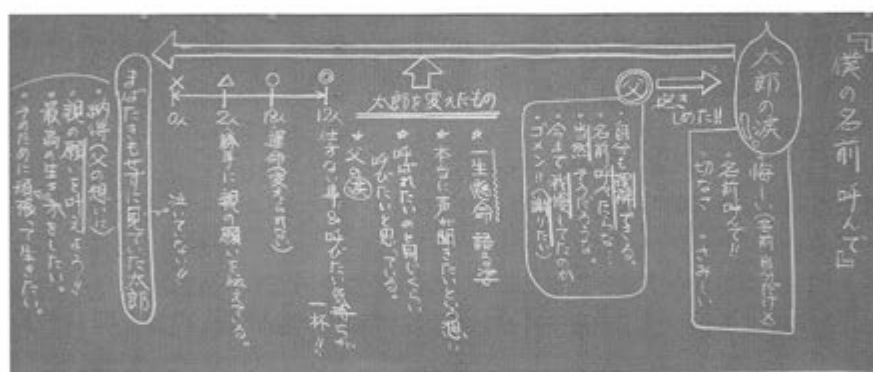 『僕の名前 呼んで』
太郎の涙
悔しい(名前
・名前呼んで!!
・切なさ ・さみしい
抱き
しめた!!
父
・自分も
名前 呼べたらな…
・当然
・今まで我慢してたのか
ゴメン!!(謝りたい)
太郎を変えたもの
★一生懸命 語る姿
★本当に声が聞きたいという想い
★呼ばれたいのと同じくらい
呼びたいと思っている。
★父の涙
◎ 12人
仕方ない事&呼びたい気持ちが
一杯!!
○ 18人
運命(変えられない)
△ 2人
絵本に親の願いを伝えている。
× 0人
泣いてない!!
まばたきもせずに見ていた太郎
・納得(父の想いに)
・親の願いを叶えよう!!
・最高の生き方をしたい。
・
のために頑張って生きたい。